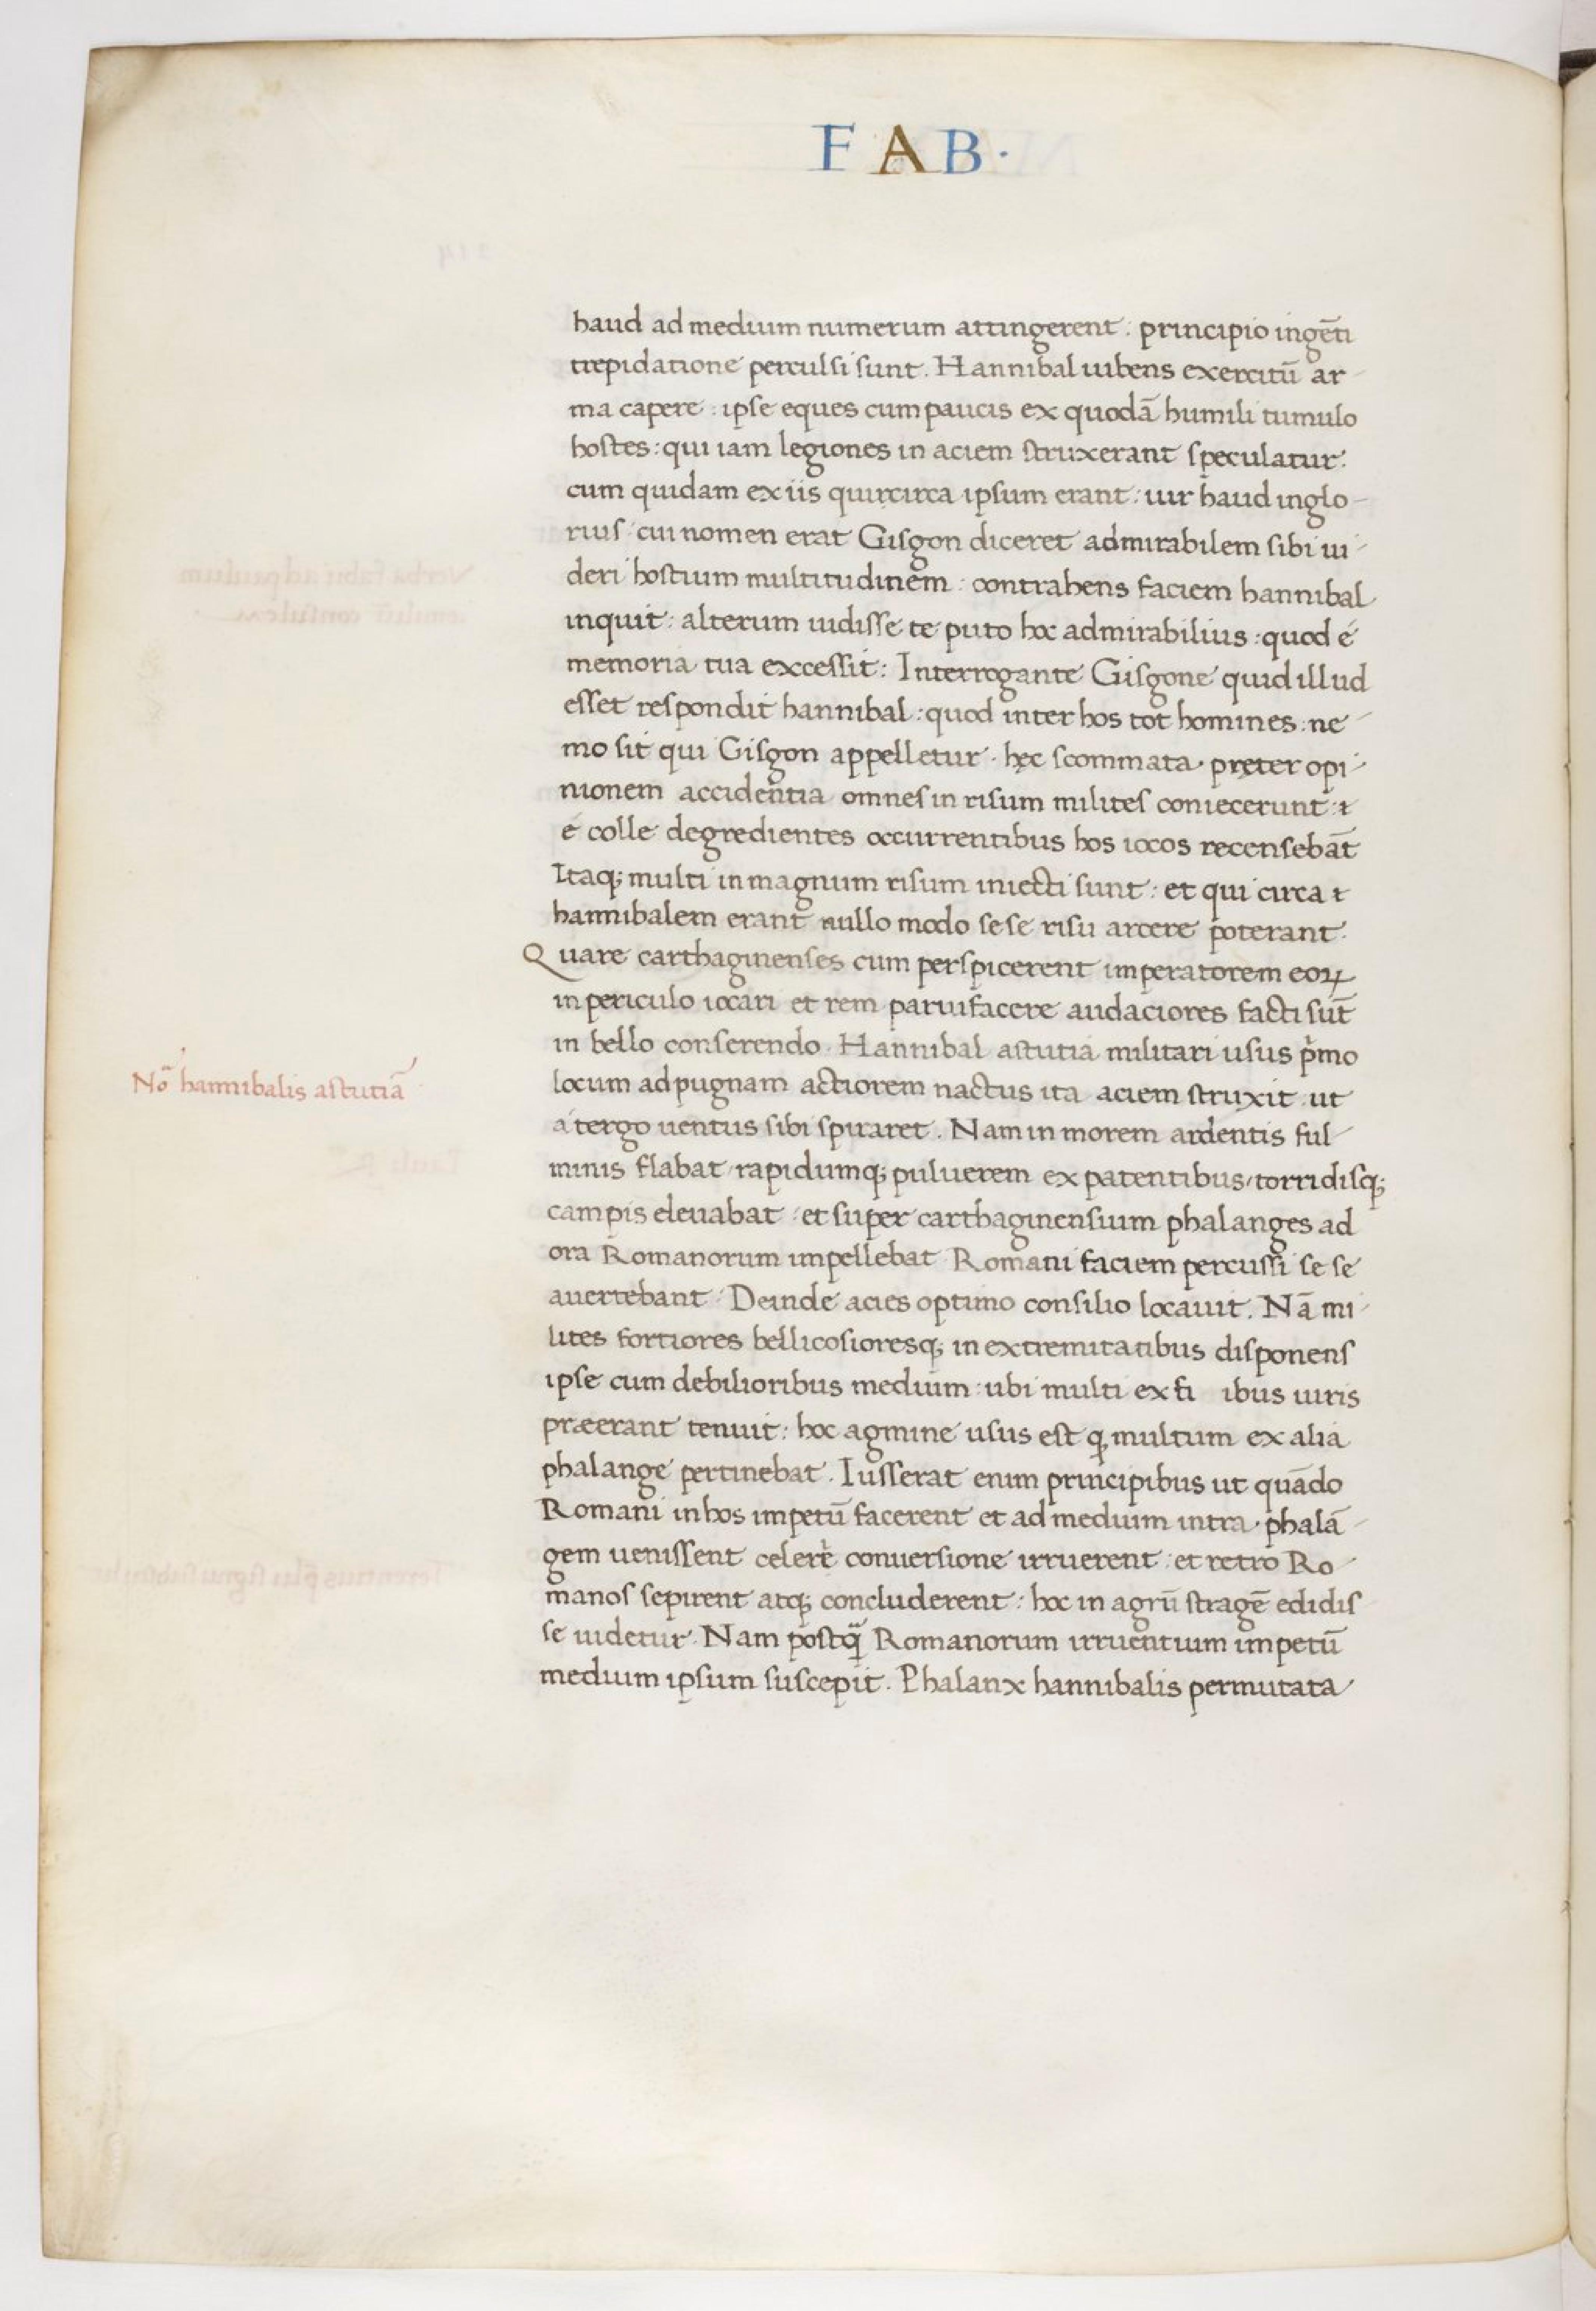 FAB·
haud ad medium numerum attingerent: principio ingēti
trepidatione perculsi sunt. Hannibal iubens exercitū ar-
ma capere: ipse eques cum paucis ex quodā humili tumulo
hostes: qui iam legiones in aciem struxerant speculatur:
cum quidam ex iis qui circa ipsum erant: uir haud inglo-
rius cui nomen erat Gisgon diceret admirabilem sibi ui-
deri hostium multitudinem: contrahens faciem hannibal
inquit: alterum uidisse te puto hoc admirabilius: quod é
memoria tua excessit: Interrogante Gisgone quid illud
esset respondit hannibal: quod inter hos tot homines: ne-
mo sit qui Gisgon appelletur· hęc scommata· pręter opi-
nionem accidentia omnes in risum milites coniecerunt: &
é colle degredientes occurrentibus hos iocos recensebāt
Itaq; multi in magnum risum iniecti sunt: et qui circa &
hannibalem erant nullo modo sese risu arcere poterant:
Quare carthaginenses cum perspicerent imperatorem eoꝝ
in periculo iocari et rem paruifacere audaciores facti sūt
in bello conserendo· Hannibal astutia militari usus p̄mo
Noᵃ hannibalis astutiā
locum ad pugnam actiorem nactus ita aciem struxit ut
á tergo uentus sibi spiraret. Nam in morem ardentis ful-
minis flabat rapidumq; puluerem ex patentibus/torridisq;
campis eleuabat: et super carthaginensium phalanges ad
ora Romanorum impellebat· Romani faciem percussi se se
auertebant· Deinde acies optimo consilio locauit. Nā mi-
lites fortiores bellicosioresq; in extremitatibus disponens
ipse cum debilioribus medium: ubi multi ex fi ibus uiris
præerant tenuit: hoc agmine usus est ꝙ multum ex alia
phalange pertinebat. Iusserat enim principibus ut quādo
Romani in hos impetū facerent et ad medium intra· phalā-
gem uenissent celerē conuersione irruerent: et retro Ro-
manos sepirent atq; concluderent: hoc in agrū stragē edidis
se uidetur· Nam postꝗᵃ Romanorum irruentium impetū
medium ipsum suscepit. Phalanx hannibalis permutata